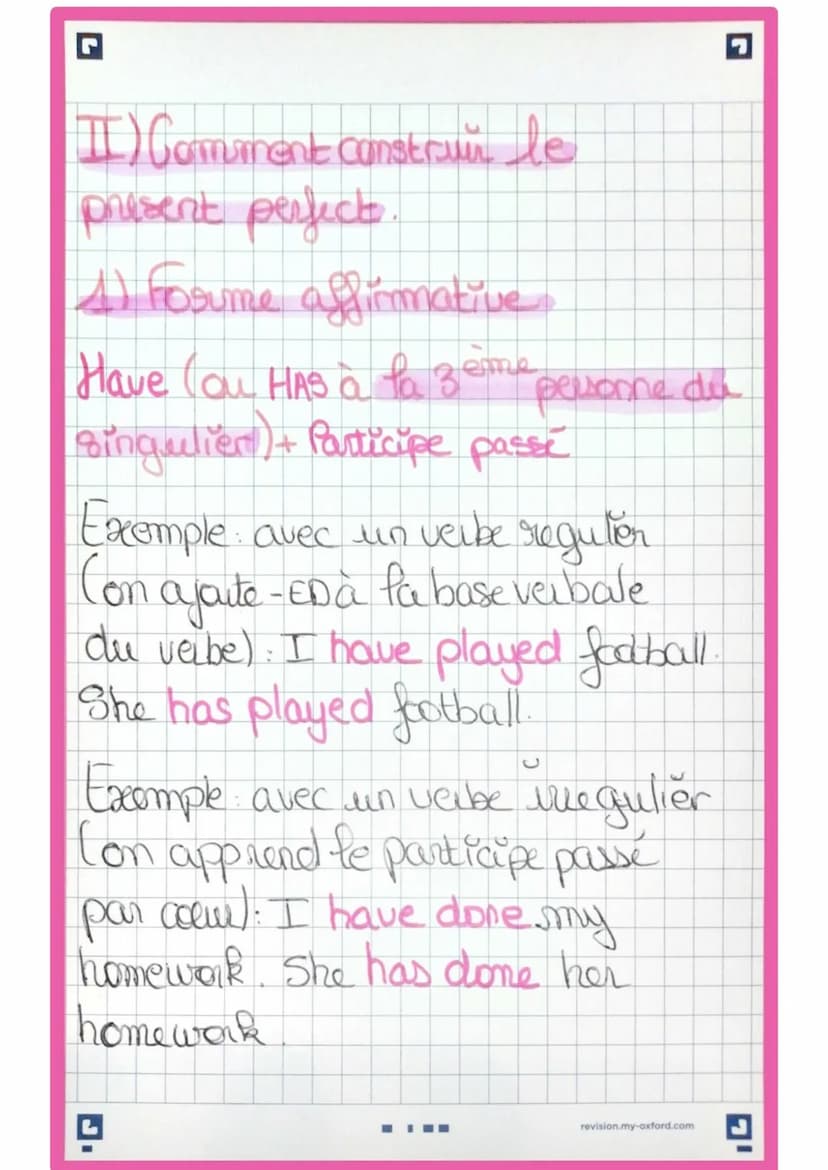 II) Comment construir le
present perfect.
1) Forme affirmative
Have (ou HAS à la 3ème personne du
singulier) + Participe passé
Exemple : avec un verbe regulier
(on ajoute -ED à la base verbale
du verbe) : I have played football.
She has played football.
Exemple : avec un verbe irregulier
(on apprend le participe passé
par cœur) : I have done my
homework. She has done her
homework.
revision.my-oxford.com